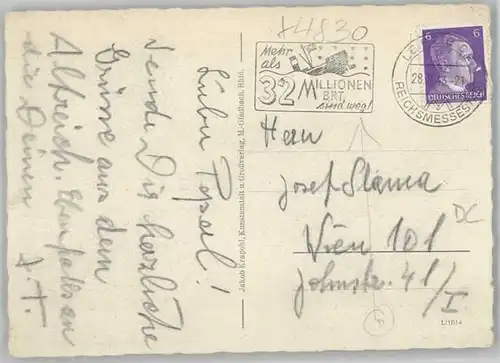 +4830
Mehr
als
32 MILLIONEN
BRT.
sind weg!
6 6
DEUTSCHES REICH
28.
REICHSMESSESTADT
Lieber Pepal!
Sende Dir herzliche
Grüsse aus dem
Altreich. Ebenfalls an
die Deinen
Jakob Krapohl, Kunstanstalt u. Großverlag, M.-Gladbach, Rhld.
Herrn
Josef Slama
Wien 101
Johnstr. 41/I
DC
L/1614